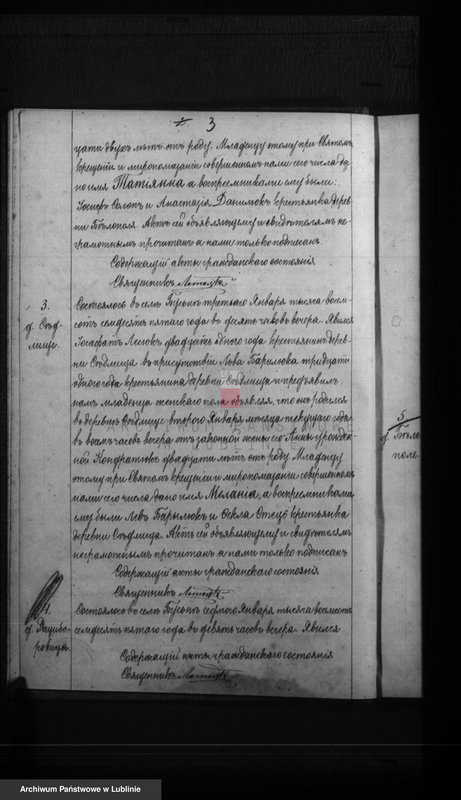 3
цати двухъ лѣтъ отъ роду. Младенцу этому при Святомъ
крещеніи и миропомазаніи совершенномъ нами сего числа да-
но имя Татіянна а воспреемниками ему были:
Іосифъ и Анастазія Данилюкъ крестьянка дерев-
ни Бѣлополя. Актъ сей объявляющему и свидѣтелямъ не-
грамотнымъ прочитанъ а нами только подписанъ.
Содержащій акты гражданскаго состоянія
Священникъ
3.
д. Сѣд-
лище.
Состоялось въ селѣ Бусьнѣ третьяго Января тысяча восемь-
сотъ семдесятъ пятаго года въ десять часовъ вечера. Явился
Іосафатъ двадцать одного года крестьянинъ дерев-
ни Сѣдлища въ присутствіи Льва Барылюка тридцати
одного года крестьянина деревни Сѣдлища и предъявилъ
намъ младенца женскаго пола объявляя, что онъ родился
въ деревнѣ Сѣдлище второго Января мѣсяца текущаго года
въ восемь часовъ вечера отъ законной жены его Анны урожден-
ной Кондратюкъ двадцати лѣтъ отъ роду. Младенцу
этому при Святомъ крещеніи и миропомазаніи совершенномъ
нами сего числа дано имя Меланія, а воспреемниками
ему были Левъ Барылюкъ и Ѳекла Стецъ крестьянка
деревни Сѣдлища. Актъ сей объявляющему и свидѣтелямъ
неграмотнымъ прочитанъ а нами только подписанъ
Содержащій акты гражданскаго состоянія
Священникъ
4.
д.
ровица.
Состоялось въ селѣ Бусьнѣ седмого Января, тысяча восемьсотъ
семдесятъ пятаго года въ девять часовъ вечера. Явился
Содержащій акты гражданскаго состоянія
Священникъ
5.
д. Бѣло
поле.
Archiwum Państwowe w Lublinie